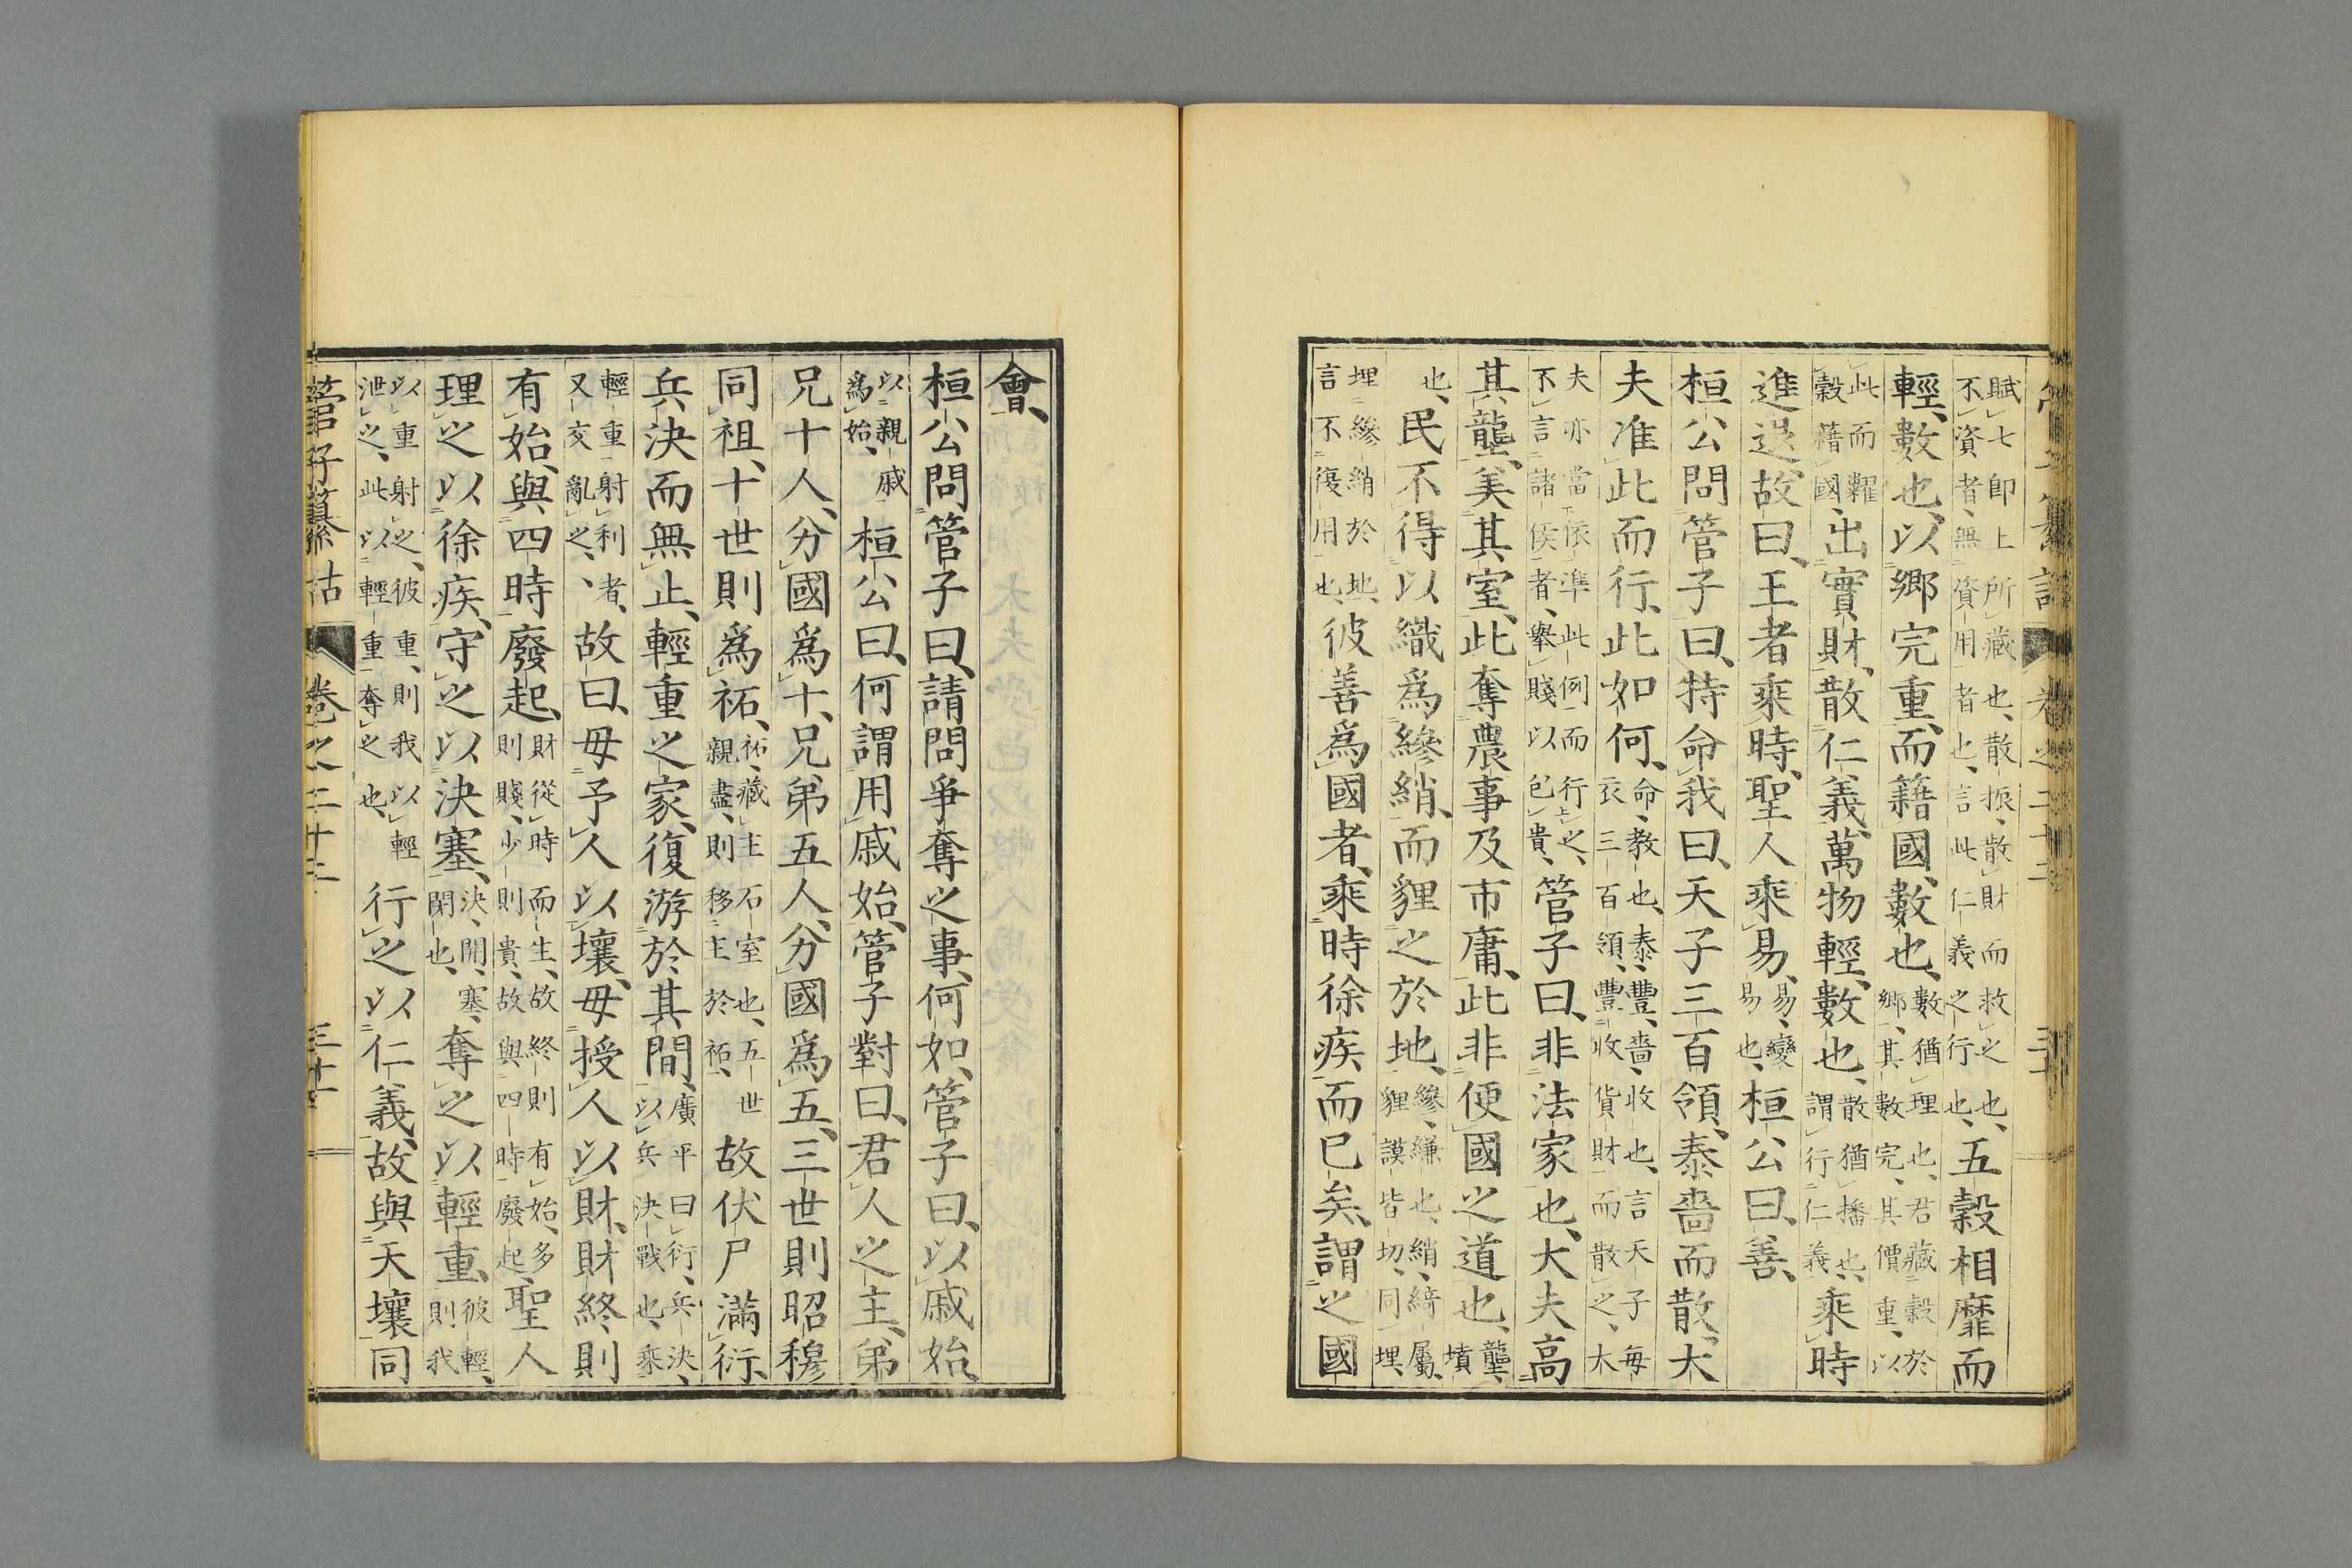 賦七卽上所藏也、散振、散財而救之也、
不資者、無資用者也、言此仁義之行也、五穀相靡而
輕、數也、以鄉完重、而籍國、數也、數猶理也、君藏穀於
鄉、其數完、其價重、以
此而糶
穀藉國、出實財、散仁義、萬物輕、數也、散猶播也、
謂行仁義、乘時
進退、故曰、王者乘時、聖人乘易、易、變
易也、桓公曰、善、
桓公問管子曰、特命我曰、天子三百領、泰嗇而散、大
夫准此而行、此如何、命、教也、泰、豐、嗇、收也、言天子每
衣三百領、豐收、貨財而散之、大
夫亦當依準此例而行之、
不言諸侯者、擧賤以包貴、管子曰、非法家也、大夫高
其壟、美其室、此奪農事及市庸、此非便國之道也、壟、墳
也、民不得以織爲縿綃、而貍之於地、縿、縑也、綃、綺屬、
貍謨皆切、同埋、
埋縿綃於地、
言不復用也、彼善爲國者、乘時徐疾而已矣、謂之國
會、
桓公問管子曰、請問爭奪之事、何如、管子曰、以戚始、
以親戚
爲始、桓公曰、何謂用戚始、管子對曰、君人之主、弟
兄十人、分國爲十、兄弟五人、分國爲五、三世則昭穆
同祖、十世則爲祏、祏、藏主石室也、五世
親盡、則移主於祏、故伏尸滿衍、
兵決而無止、輕重之家、復游於其間、廣平曰衍、兵決、
以兵決戰也、乘
輕重射利者、
又交亂之、故曰、毋予人以壤、毋授人以財、財終則
有始、與四時廢起、財從時而生、故終則有始、多
則賤、少則貴、故與四時廢起、聖人
理之以徐疾、守之以決塞、決、開、塞、
閉也、奪之以輕重、彼輕、
則我
以重射之、彼重、則我以輕
泄之、此以輕重奪之也、行之以仁義、故與天壤同
管子纂詁　卷之二十二　三十一